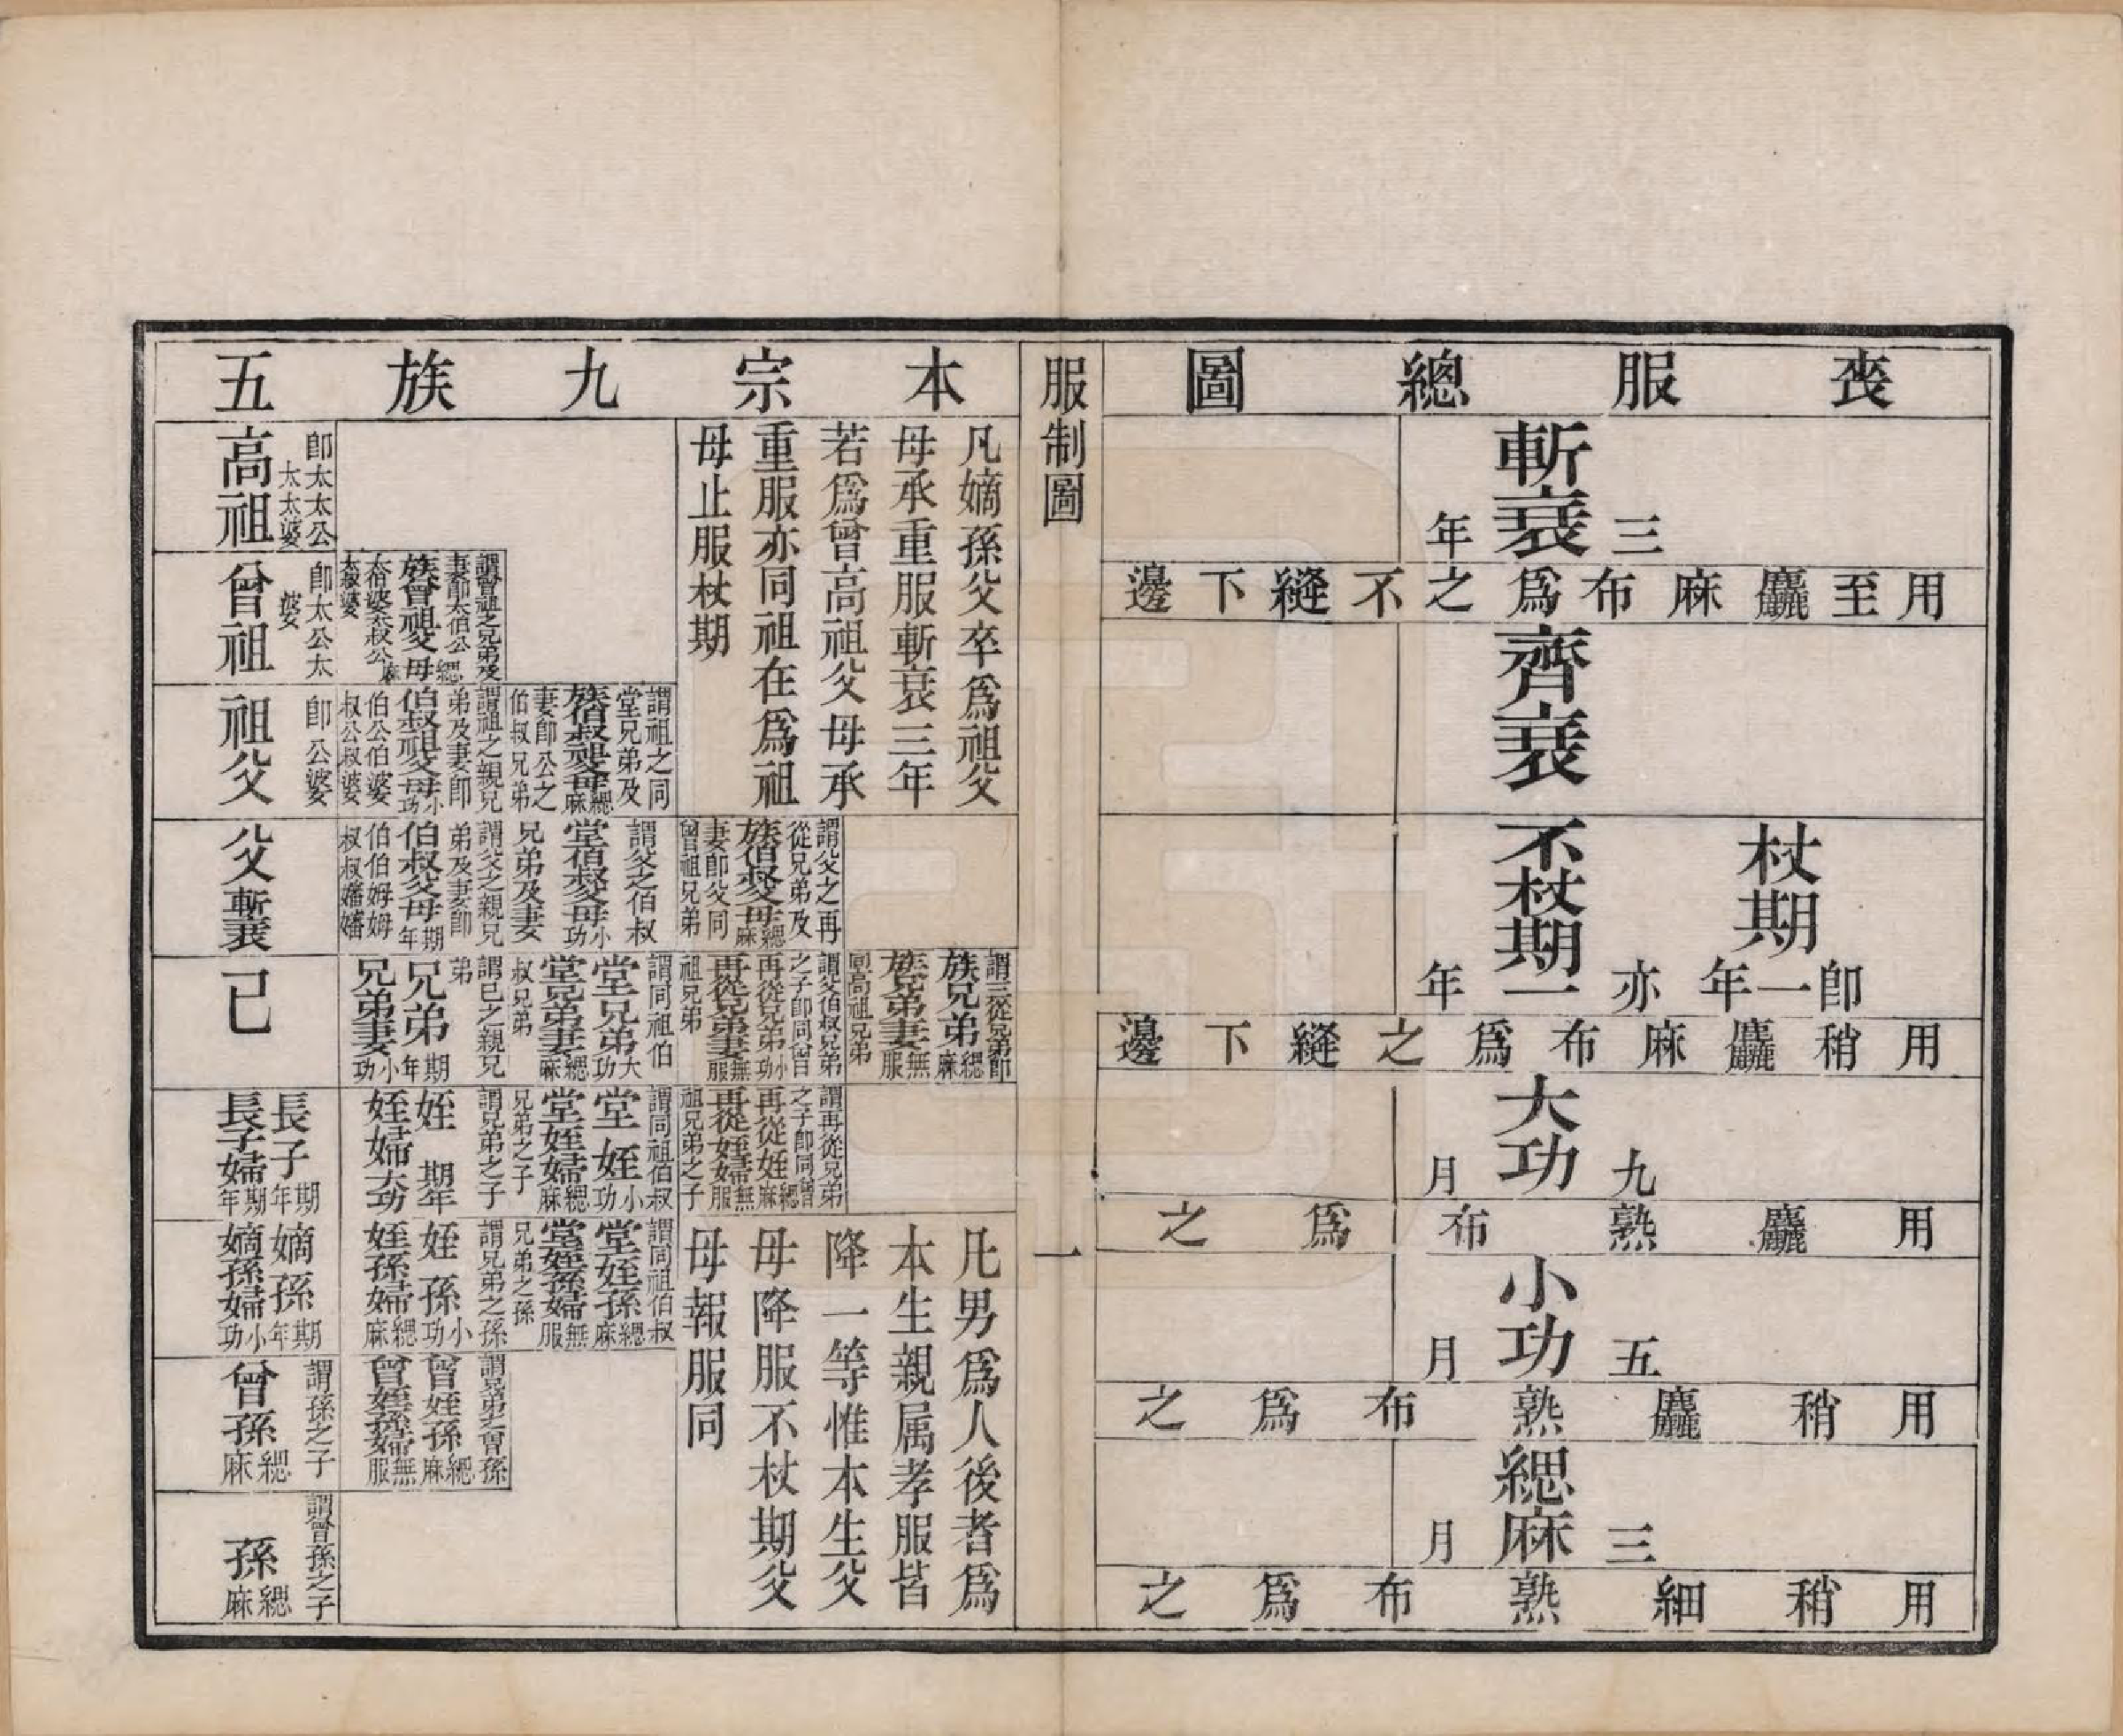 喪服總圖
斬衰三年
用至麤麻布爲之不縫下邊
齊衰
杖期即一年
不杖期亦一年
用稍麤麻布爲之縫下邊
大功九月
用麤熟布爲之
小功五月
用稍麤熟布爲之
緦麻三月
用稍細熟布爲之
服制圖
一
本宗九族五
凡嫡孫父卒爲祖父
母承重服斬衰三年
若爲曾高祖父母承
重服亦同祖在爲祖
母止服杖期
謂三從兄弟卽
族兄弟緦麻
族兄弟妻無服
同高祖兄弟
凡男爲人後者爲
本生親属孝服皆
降一等惟本生父
母降服不杖期父
母報服同
謂父之再
從兄弟及
族伯叔父母緦麻
妻卽父同
曾祖兄弟
謂父伯叔兄弟
之子卽同曾
再從兄弟小功
再從兄弟妻無服
祖兄弟
謂再從兄弟
之子卽同曾
再從姪緦麻
再從姪婦無服
祖兄弟之子
謂祖之同
堂兄弟及
族伯叔祖父母緦麻
妻卽公之
伯叔兄弟
謂父之伯叔
堂伯叔父母小功
兄弟及妻
謂同祖伯
堂兄弟大功
堂兄弟妻緦麻
叔兄弟
謂同祖伯叔
堂姪小功
堂姪婦緦麻
兄弟之子
謂同祖伯叔
堂姪孫緦麻
堂姪孫婦無服
兄弟之孫
謂曾祖之兄弟及
妻卽太伯公
族曾祖父母緦麻
太伯婆太叔公
太叔婆
謂祖之親兄
弟及妻卽
伯叔祖父母小功
伯公伯婆
叔公叔婆
謂父之親兄
弟及妻卽
伯叔父母期年
伯伯姆姆
叔叔嬸嬸
謂己之親兄
弟
兄弟期年
兄弟妻小功
謂兄弟之子
姪期年
姪婦大功
謂兄弟之孫
姪孫小功
姪孫婦緦麻
謂兄弟之曾孫
曾姪孫緦麻
曾姪孫婦無服
卽太太公
太太婆
高祖
卽太公太
婆
曾祖
卽公婆
祖父
父斬衰
己
長子期年
長子婦期年
嫡孫期年
嫡孫婦小功
謂孫之子
曾孫緦麻
謂曾孫之子
孫緦麻